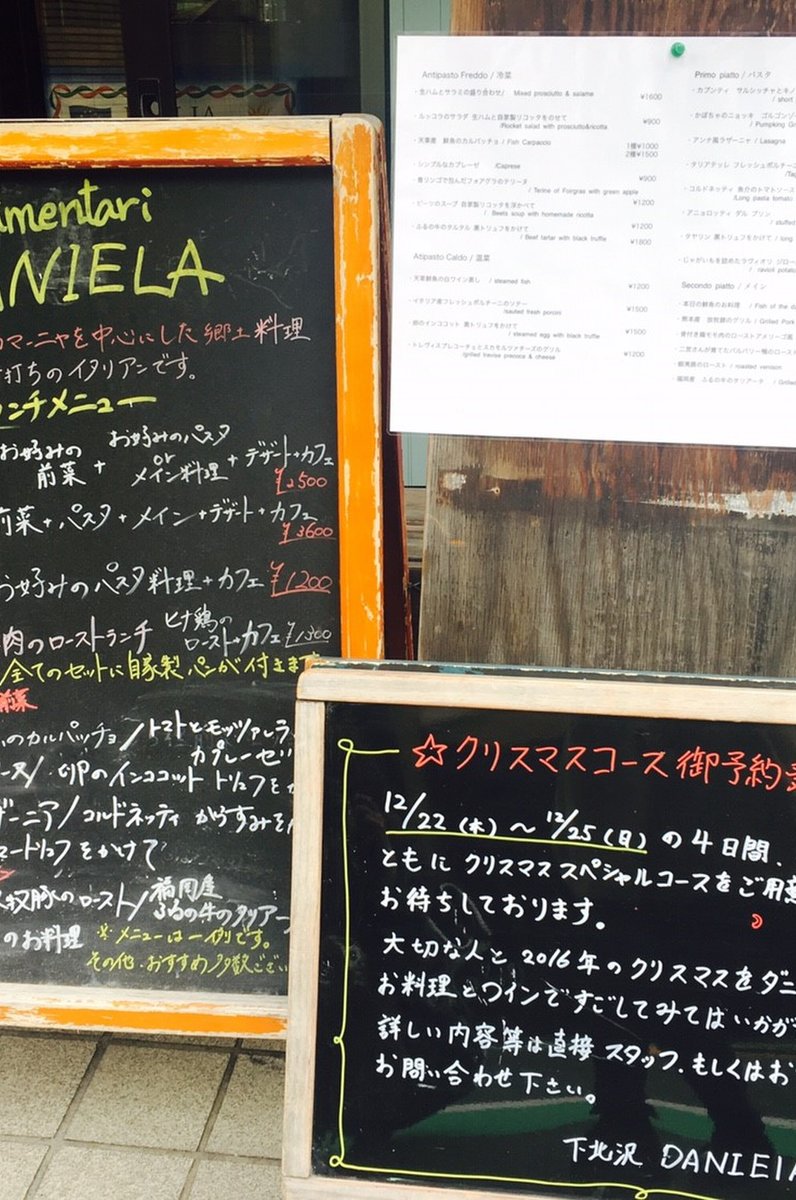 amentari
ANIELA
マーニャを中心にした郷土料理
打ちのイタリアンです。
ンチメニュー
お好みの前菜 + お好みのパスタ or メイン料理 + デザート+カフェ
¥2500
前菜+パスタ+メイン+デザート+カフェ
¥3600
お好みのパスタ料理+カフェ ¥1200
肉のローストランチ ヒナ鶏のロースト+カフェ ¥1300
全てのセットに自家製パンが付きます
前菜
のカルパッチョ/トマトとモッツァレラ
カプレーゼ
ス/卵のインココット トリュフを
ザーニア/コルドネッティ からすみを
トリュフをかけて
牧豚のロースト/福岡産
ふるの牛のタリアー
のお料理 ※メニューは一例です。
その他、おすすめ多数ござい
Antipasto Freddo / 冷菜
・生ハムとサラミの盛り合わせ/ Mixed prosciutto & salame ¥1600
・ルッコラのサラダ 生ハムと自家製リコッタをのせて
/Rocket salad with prosciutto&ricotta ¥900
・天草産 鮮魚のカルパッチョ / Fish Carpaccio 1種¥1000
2種¥1500
・シンプルなカプレーゼ /Caprese
・青リンゴで包んだフォアグラのテリーヌ ¥900
/ Terine of Foirgras with green apple
・ビーツのスープ 自家製リコッタを浮かべて ¥1200
/ Beets soup with homemade ricotta
・ふるの牛のタルタル 黒トリュフをかけて ¥1200
/ Beef tartar with black truffle ¥1800
Atipasto Caldo / 温菜
・天草鮮魚の白ワイン蒸し / steamed fish ¥1200
・イタリア産フレッシュポルチーニのソテー
/sauted fresh porcini ¥1500
・卵のインココット 黒トリュフをかけて
/ steamed egg with black truffle ¥1500
・トレヴィスプレコーチェとスカモルツァチーズのグリル
/grilled trevise precoce & cheese ¥1200
Primo piatto / パスタ
・カブンティ サルシッチャとキノ
/ short
・かぼちゃのニョッキ ゴルゴンゾー
/ Pumpking Gn
・アンナ風ラザーニャ / Lasagna
・タリアテッレ フレッシュポルチーニ
/Tag
・コルドネッティ 魚介のトマトソース
/Long pasta tomato
・アニョロッティ ダル プリン
/ stuffed
・タヤリン 黒トリュフをかけて / long
・じゃがいもを詰めたラヴィオリ ジロー
/ ravioli potato
Secondo piatto / メイン
・本日の鮮魚のお料理 / Fish of the d
・熊本産 放牧豚のグリル / Grilled Pork
・骨付き鶏モモ肉のローストアメリーゴ風
・二宮さんが育てたバルバリー鴨のロースト
・蝦夷鹿のロースト / roasted venison
・福岡産 ふるの牛のタリアータ / Grilled
☆クリスマスコース御予約
12/22(木)〜12/25(日)の4日間、
ともにクリスマススペシャルコースをご用意
お待ちしております。
大切な人と2016年のクリスマスをダニ
お料理とワインですごしてみてはいかが
詳しい内容等は直接スタッフ、もしくはお
お問い合わせ下さい。
下北沢 DANIElA